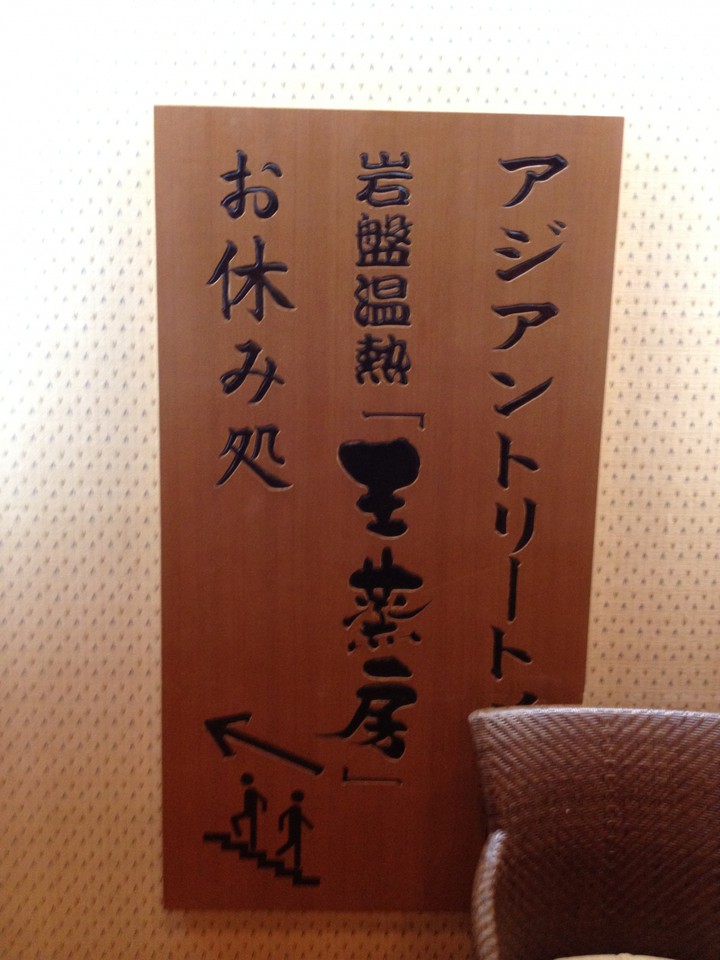 アジアントリート
岩盤温熱「王蒸房」
お休み処